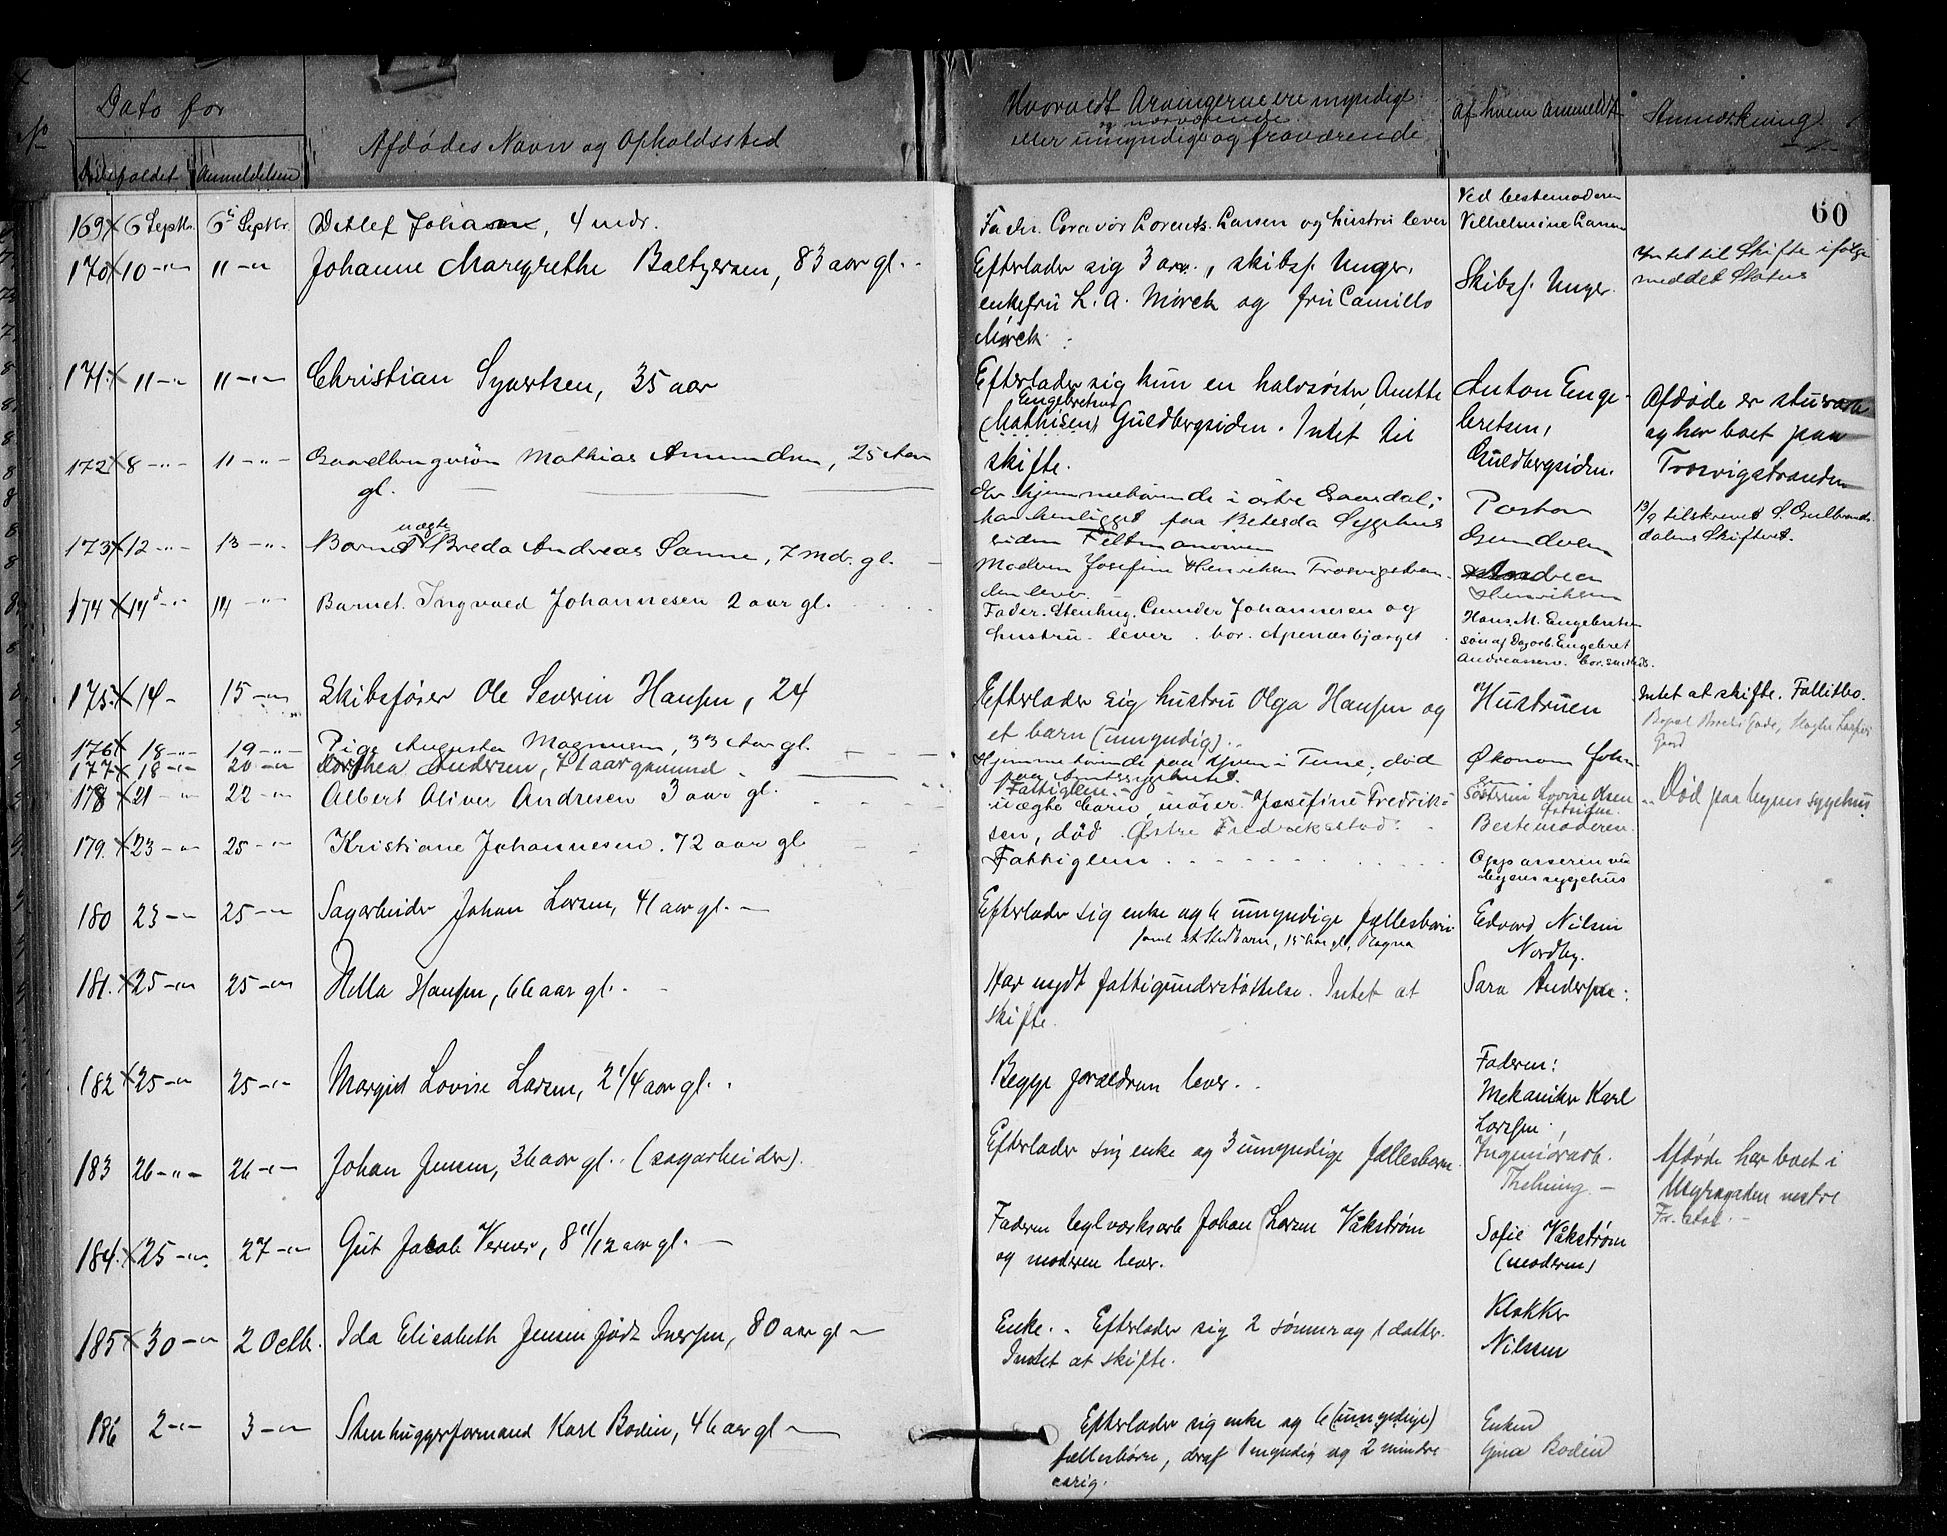 60
No
Dato for
Dødsfaldet Anmeldelsen
Afdødes Navn og Opholdssted
Hvorvidt Arvingerne ere myndige
og nærværende
eller umyndige og fraværende
Af hvem anmeldt
Anmærkning
169 x 6 Septbr. 6 Septbr. Detlef Johan, 4 mdr.
Lorents Larsen og hustru lever
Ved bestemoderen
Vilhelmine Larsen
170 x 10 -"- 11 -"- Johanne Maregrethe Baltzersen, 83 aar gl.
Efterlader sig 3 arv., skibsf. Unger,
enkefru L. A. Mørch og fru Camillo
Mørch.
Skibsf. Unger.
Intet til Skifte ifølge
meddelt Status
171. x 11 -"- 11 -"- Christian Syvertsen, 35 aar
Efterlader sig kun en halvsøster, Anette
Engebretsen
(Mathisen) Guldbergsiden. Intet til
skifte.
Anton Enge-
bretsen,
Guldbergsiden.
Afdøde er stuert
og har boet paa
Trosvigstranden
172 x 8 -"- 11 -"- Gaardbrugersøn Mathias Amundsen, 25 Aar
gl.
er hjemmehørende i østre Gausdal;
har henligget paa Betesda Sygehus
siden
Pastor
Gundersen
13/9 tilskrevet S. Gulbrands-
dalens Skifteret.
173 x 12 -"- 13 -"- Barnet uægte Breda Andreas Sanne, 7 md. gl.
Moderen Josefine Henriksen Trosvigstran-
den lever.
Andrea
Henriksen
174 x 14 -"- 14 -"- Barnet Ingvald Johannesen 2 aar gl.
Fader. Stenhug. Gunder Johannesen og
hustru lever. bor. Apenæsbjærget
Hans M. Engebretsen
søn af Dagarb. Engebret
Andreassen. bor smsteds.
175. x 14 - 15 -"- Skibsfører Ole Severin Hansen, 24
Efterlader sig hustru Olga Hansen og
et barn (umyndig).
Hustruen
Intet at skifte. Fallitbo.
176 x 18 -"- 19 -"- Pige Augusta Magnusen, 33 Aar gl.
Hjemmehørende paa i Tune, død
paa Amtssygehuset.
Økonom John-
sen
177 x 18 -"- 20 -"- Dorthea Andersen, 71 aar gammel
Fattiglem.
Søsteren Lovise Olsen
Død paa byens sygehus.
178 x 21 -"- 22 -"- Albert Oliver Andresen 3 aar gl.
uægte barn, moder: Josefine Fredrik-
sen, død. Østre Fredrikstad.
Bestemoderen.
179. x 23 -"- 25 -"- Kristiane Johannesen. 72 aar gl.
Fattiglem
Oppasseren ved
byens sygehus
180 23 -"- 25 -"- Sagarbeider Johan Larsen, 41 aar gl.
Efterlader sig enke og 6 umyndige fællesbørn
samt et Stedbarn, 15 Aar gl., Ragna
Edvard Nilsen
Nordby.
181. x 25 -"- 25 -"- Hella Hansen, 66 aar gl.
Har nydt fattigunderstøttelse. Intet at
skifte.
Sara Andersen.
182 x 25 -"- 25 -"- Margit Lovise Larsen, 2 1/4 aar gl.
Begge forældren lever.
Faderen:
Mekaniker Karl
Larsen.
183 26 -"- 26 -"- Johan Jensen, 36 aar gl. (sagarbeider).
Efterlader sig enke og 3 umyndige fællesbørn
Ingeniørarb.
Thelning -
Afdøde har boet i
Myragaden vestre
Fr. stad.
184. x 25 -"- 27 -"- Gut Jacob Verner, 8 11/12 aar gl.
Faderen teglværksarb Johan Larsen Våkstrøm
og moderen lever.
Sofie Våkstrøm
(moderen)
185 x 30 -"- 2 Octb. Ida Elisabeth Jensen født Iversen, 80 aar gl
Enke. Efterlader sig 2 sønner og 1 datter.
Intet at skifte.
Klokker
Nilssen
186 2 -"- 3 -"- Stenhuggerformand Karl Bodin, 46 aar gl
Efterlader sig enke og 6 (umyndige)
fællesbørn, deraf 1 myndig og 2 mindre
aarig.
Enken
Gina Bodin